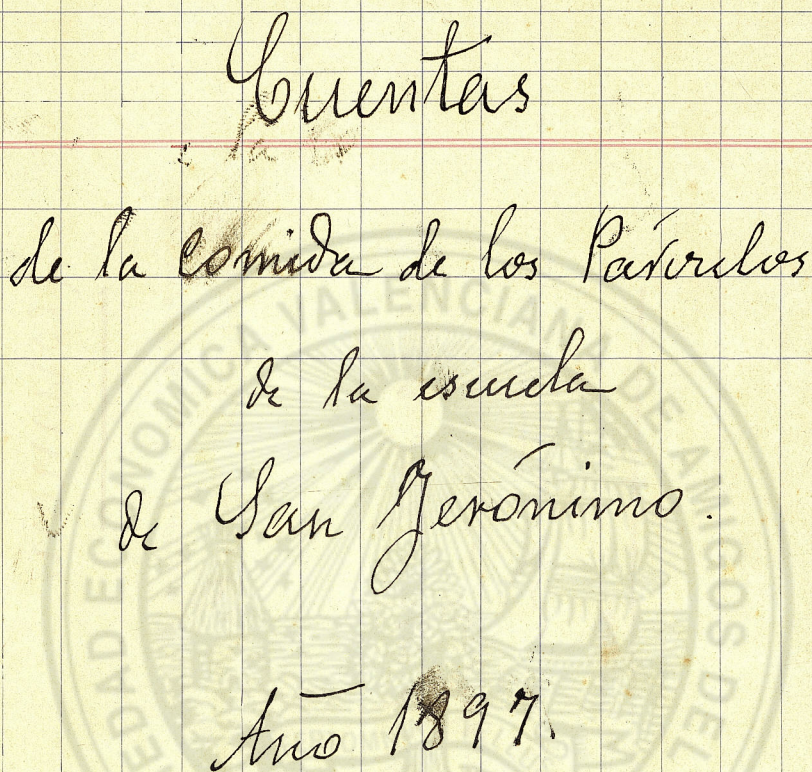 Cuentas
de la comida de los Párvulos
de la escuela
de San Jerónimo.
Año 1897.
EDAD ECONOMICA VALENCIANA DE AMIGOS DEL